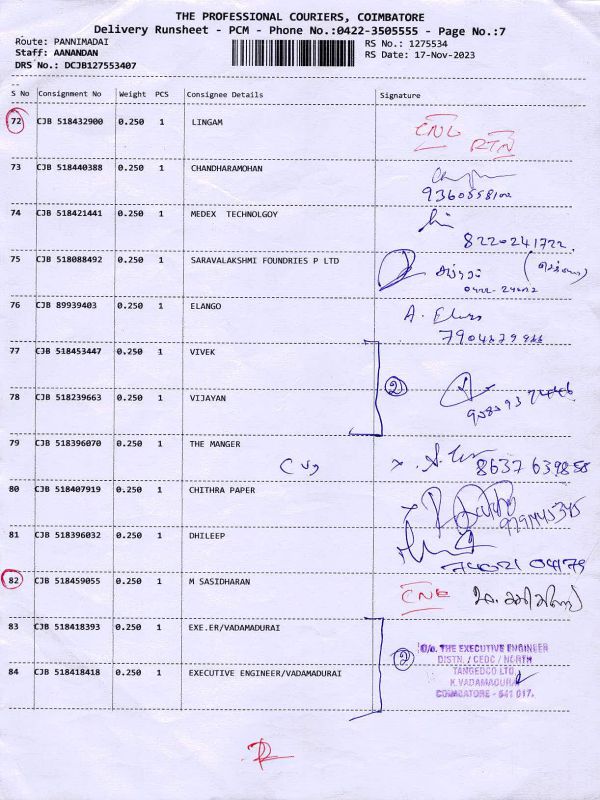 THE PROFESSIONAL COURIERS, COIMBATORE
Delivery Runsheet - PCM - Phone No.:0422-3505555 - Page No.:7
Route: PANNIMADAI
RS No.: 1275534
Staff: AANANDAN
RS Date: 17-Nov-2023
DRS No.: DCJB127553407
S No Consignment No Weight PCS Consignee Details Signature
72 CJB 518432900 0.250 1 LINGAM CNL RTN
73 CJB 518440388 0.250 1 CHANDHARAMOHAN
74 CJB 518421441 0.250 1 MEDEX TECHNOLGOY 8220241722.
75 CJB 518088492 0.250 1 SARAVALAKSHMI FOUNDRIES P LTD
76 CJB 89939403 0.250 1 ELANGO
77 CJB 518453447 0.250 1 VIVEK
2
78 CJB 518239663 0.250 1 VIJAYAN
79 CJB 518396070 0.250 1 THE MANGER 8637639858
80 CJB 518407919 0.250 1 CHITHRA PAPER
81 CJB 518396032 0.250 1 DHILEEP
82 CJB 518459055 0.250 1 M SASIDHARAN
83 CJB 518418393 0.250 1 EXE.ER/VADAMADURAI
2
84 CJB 518418418 0.250 1 EXECUTIVE ENGINEER/VADAMADURAI
O/o. THE EXECUTIVE ENGINEER
DISTN. / CEDC / NORTH
TANGEDCO LTD.
K.VADAMADURAI
COIMBATORE - 641 017.